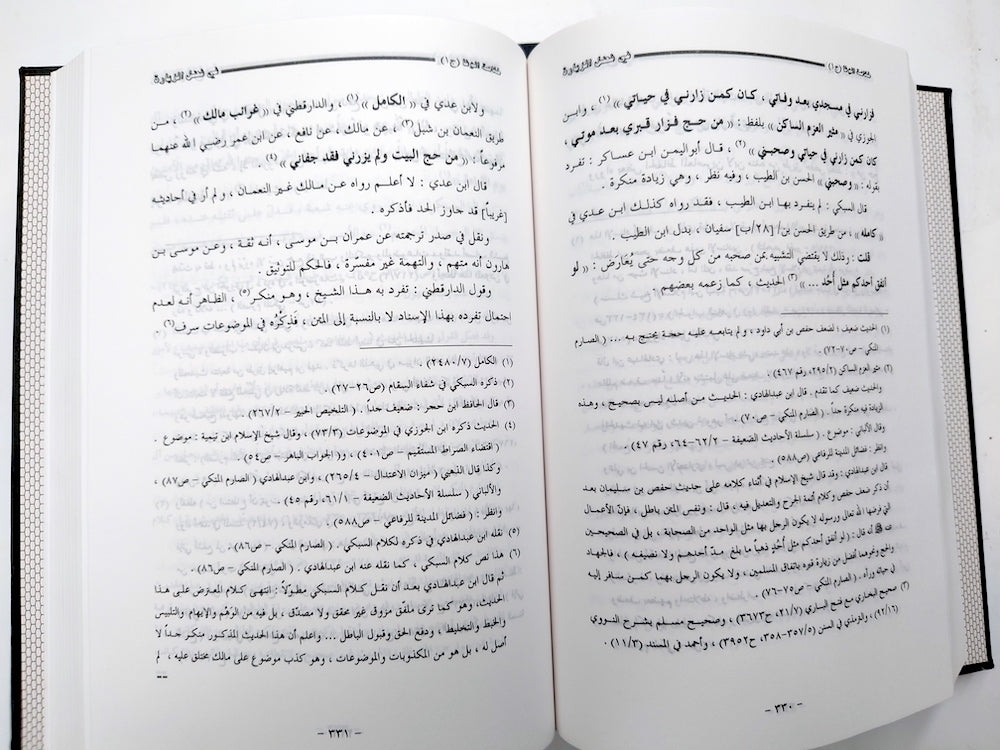 في فضل الزيارة
خلاصة الوفا (ج١)
فزارني في مسجدي بعد وفاتي ، كان كمن زارني في حياتي » (١) ، وابن
الجوزي في « مثير العزم الساكن » بلفظ : « من حج فزار قبري بعد موتي ،
كان كمن زارني في حياتي وصحبني » (٢) ، قال أبواليمن ابن عساكر : تفرد
بقوله : « وصحبني » الحسن بن الطيب ، وفيه نظر ، وهي زيادة منكرة .
قال السبكي : لم ينفرد بها ابن الطيب ، فقد رواه كذلك ابن عدي في
« كامله » ، من طريق الحسن بن/ [٢٨/ب] سفيان ، بدل ابن الطيب .
قلت : وذلك لا يقتضي التشبيه بمن صحبه من كل وجه حتى يعارض : « لو
أنفق أحدكم مثل أُحُد ... » (٣) الحديث ، كما زعمه بعضهم .
(١) الحديث ضعيف ؛ لضعف حفص بن أبي داود ، ولم يتابعه عليه حجة يحتج به ... ( الصارم
المنكي – ص٧٠-٧٢) .
(٢) مثير العزم الساكن (٢٩٥/٢، رقم ٤٦٧) .
والحديث ضعيف كما تقدم . قال ابن عبدالهادي : الحديث من أصله ليس بصحيح ، وهذه
الزيادة فيه منكرة جداً . ( الصارم المنكي – ص٧٠) .
وقال الألباني : موضوع . ( سلسلة الأحاديث الضعيفة – ٦٢/٢-٦٤، رقم ٤٧) .
وانظر : فضائل المدينة للرفاعي (ص٥٨٨) .
قال ابن عبدالهادي : وقد قال شيخ الإسلام في أثناء كلامه على حديث حفص بن سليمان بعد
أن ذكر ضعف حفص وكلام أئمة الجرح والتعديل فيه ، قال : ونفس المتن باطل ، فإن الأعمال
التي فرضها الله تعالى ورسوله لا يكون الرجل بها مثل الواحد من الصحابة ، بل في الصحيحين
عنه ﷺ أنه قال : ( لو أنفق أحدكم مثل أُحُدٍ ذهباً ما بلغ مدّ أحدهم ولا نصيفه ) ، فالجهاد
والحج ونحوهما أفضل من زيارة قبره باتفاق المسلمين ، ولا يكون الرجل بهما كمن سافر إليه
في حياته ورآه . ( الصارم المنكي – ص٧٥-٧٦) .
(٣) صحيح البخاري مع فتح الباري (٢١/٧، ح٣٦٧٣) ، وصحيح مسلم بشرح النووي
(٩٢/١٦) ، والترمذي في السنن (٣٥٧/٥-٣٥٨، ح٣٩٥٢) ، وأحمد في المسند (١١/٣) .
– ٣٣٠ –
خلاصة الوفا (ج١)
في فضل الزيارة
ولابن عدي في « الكامل » (١) ، والدارقطني في « غرائب مالك » (٢) ، من
طريق النعمان بن شبل (٣) ، عن مالك ، عن نافع ، عن ابن عمر رضي الله عنهما
مرفوعاً : « من حج البيت ولم يزرني فقد جفاني » (٤) .
قال ابن عدي : لا أعلم رواه عن مالك غير النعمان ، ولم أر في أحاديثه
[غريباً] قد جاوز الحد فأذكره .
ونقل في صدر ترجمته عن عمران بن موسى ، أنه ثقة ، وعن موسى بن
هارون أنه متهم ، والتهمة غير مفسّرة ، فالحكم للتوثيق .
وقول الدارقطني : تفرد به هذا الشيخ ، وهو منكر (٥) ، الظاهر أنه لعدم
احتمال تفرده بهذا الإسناد لا بالنسبة إلى المتن ، فَذِكْرُه في الموضوعات سرف (٦) .
(١) الكامل (٢٤٨٠/٧) .
(٢) ذكره السبكي في شفاء السقام (ص٢٦-٢٧) .
(٣) قال الحافظ ابن حجر : ضعيف جداً . ( التلخيص الحبير – ٢٦٧/٢) .
(٤) الحديث ذكره ابن الجوزي في الموضوعات (٧٣/٣) ، وقال شيخ الإسلام ابن تيمية : موضوع .
( اقتضاء الصراط المستقيم – ص٤٠١) ، و( الجواب الباهر – ص٥٤) .
وكذا قال الذهبي ( ميزان الاعتدال – ٢٦٥/٤) ، وابن عبدالهادي ( الصارم المنكي – ص٨٧) ،
والألباني ( سلسلة الأحاديث الضعيفة – ٦١/١، رقم ٤٥) .
وانظر : ( فضائل المدينة للرفاعي – ص٥٨٨) .
(٥) نقله ابن عبدالهادي في ذكره لكلام السبكي . ( الصارم المنكي – ص٨٦) .
(٦) هذا نص كلام السبكي ، كما نقله عنه ابن عبدالهادي . ( الصارم المنكي – ص٨٦) .
ثم قال ابن عبدالهادي بعد أن نقل كلام السبكي مطولاً : انتهى كلام المعترض على هذا
الحديث، وهو كما ترى ملفّق مزوق غير محقق ولا مصدّق، بل فيه من الوَهْم والإيهام والتلبيس
والخبط والتخليط ، ودفع الحق وقبول الباطل ... واعلم أن هذا الحديث المذكور منكر جداً لا
أصل له ، بل هو من المكذوبات والموضوعات ، وهو كذب موضوع على مالك مختلق عليه ، لم
--
– ٣٣١ –